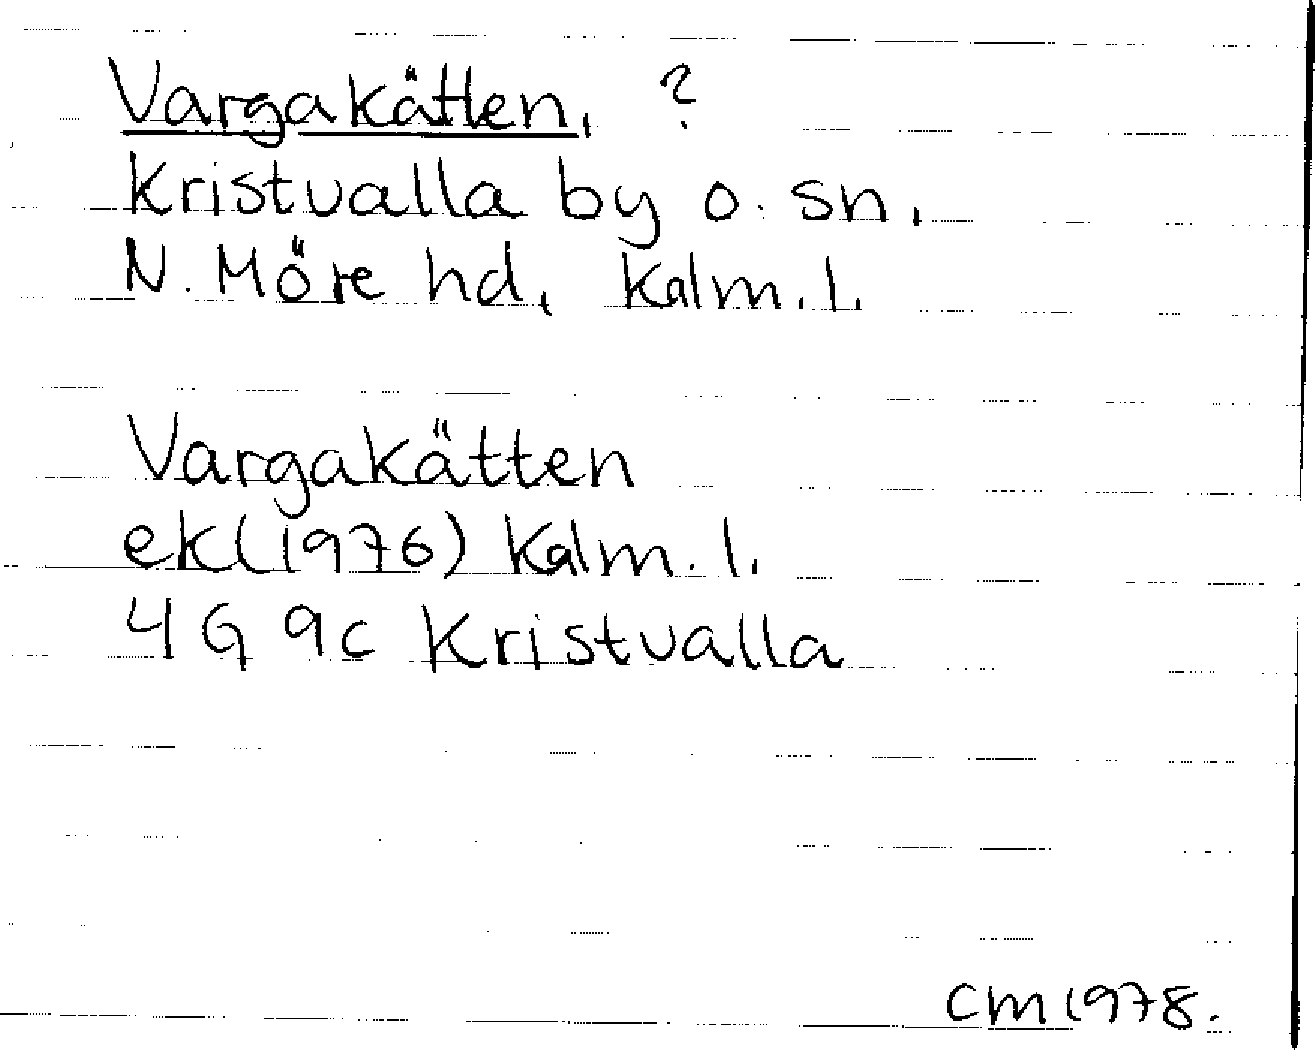 Vargakätten, ?
Kristvalla by o. sn.
N. Möre hd, Kalm. l.
Vargakätten
ek (1976) Kalm. l.
4 G 9c Kristvalla
CM 1978.